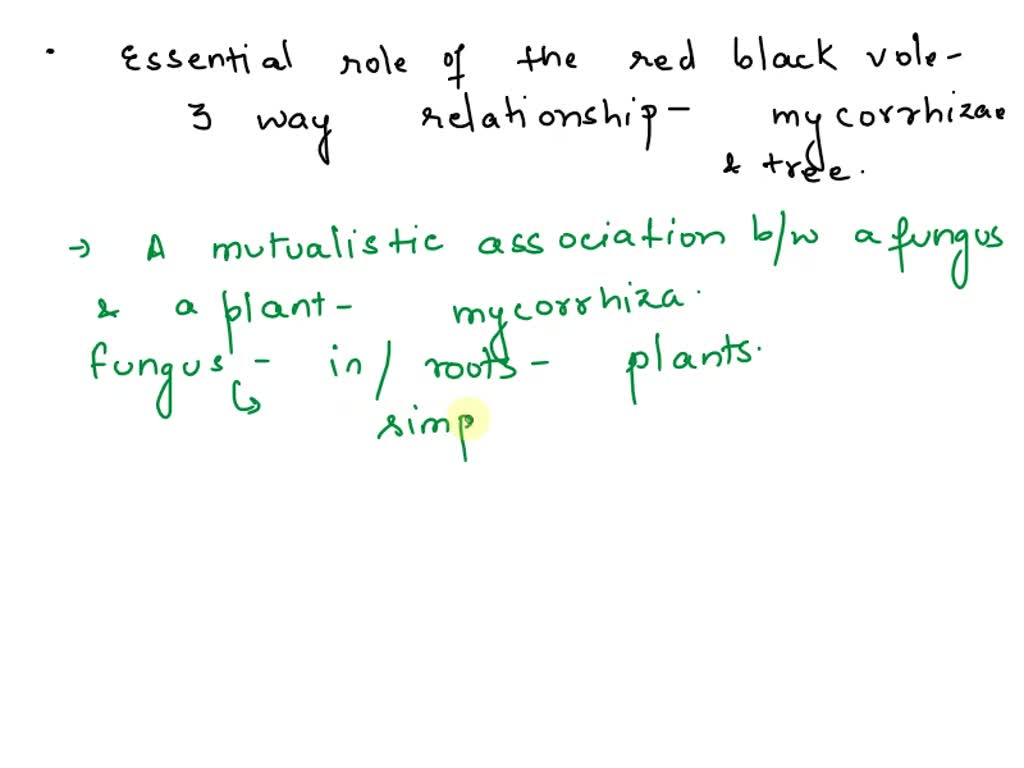 • Essential role of the red black vole-
3 way relationship- mycorrhizae
& tree.
→ A mutualistic association b/w a fungus
& a plant- mycorrhiza.
fungus - in/ roots - plants.
↳ simp